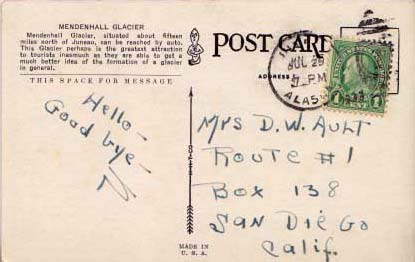 MENDENHALL GLACIER
Mendenhall Glacier, situated about fifteen
miles north of Juneau, can be reached by auto.
This Glacier perhaps is the greatest attraction
to tourists inasmuch as they are able to get a
much better idea of the formation of a glacier
in general.
THIS SPACE FOR MESSAGE
Hello-
Good bye-
POST CARD
ADDRESS
JUL 25
PM
ALAS
1 1
Mrs D. W. AULT
Route #1
Box 138
SAN DiEGO
Calif.
MADE IN
U. S. A.